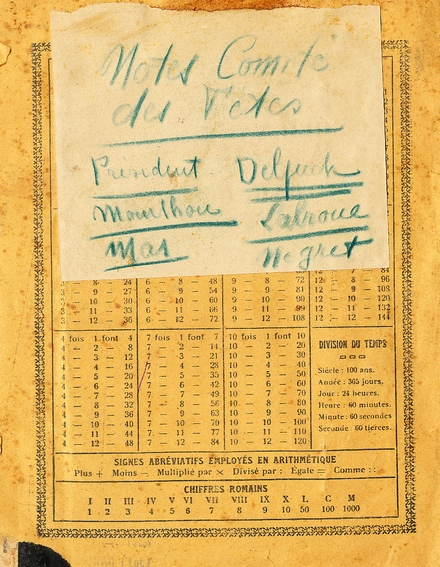 Notes Comité
des Fêtes
Président Delpuech
Mourlhou Lalroue
Mas Negret
3 — 8 — 24 6 — 8 — 48 9 — 8 — 72 12 — 8 — 96
3 — 9 — 27 6 — 9 — 54 9 — 9 — 81 12 — 9 — 108
3 — 10 — 30 6 — 10 — 60 9 — 10 — 90 12 — 10 — 120
3 — 11 — 33 6 — 11 — 66 9 — 11 — 99 12 — 11 — 132
3 — 12 — 36 6 — 12 — 72 9 — 12 — 108 12 — 12 — 144
4 fois 1 font 4 7 fois 1 font 7 10 fois 1 font 10
4 — 2 — 8 7 — 2 — 14 10 — 2 — 20
4 — 3 — 12 7 — 3 — 21 10 — 3 — 30
4 — 4 — 16 7 — 4 — 28 10 — 4 — 40
4 — 5 — 20 7 — 5 — 35 10 — 5 — 50
4 — 6 — 24 7 — 6 — 42 10 — 6 — 60
4 — 7 — 28 7 — 7 — 49 10 — 7 — 70
4 — 8 — 32 7 — 8 — 56 10 — 8 — 80
4 — 9 — 36 7 — 9 — 63 10 — 9 — 90
4 — 10 — 40 7 — 10 — 70 10 — 10 — 100
4 — 11 — 44 7 — 11 — 77 10 — 11 — 110
4 — 12 — 48 7 — 12 — 84 10 — 12 — 120
DIVISION DU TEMPS
Siècle : 100 ans.
Année : 365 jours.
Jour : 24 heures.
Heure : 60 minutes.
Minute : 60 secondes
Seconde : 60 tierces.
SIGNES ABRÉVIATIFS EMPLOYÉS EN ARITHMÉTIQUE
Plus + Moins — Multiplié par × Divisé par : Égale = Comme ::
CHIFFRES ROMAINS
I II III IV V VI VII VIII IX X L C M
1 2 3 4 5 6 7 8 9 10 50 100 1000